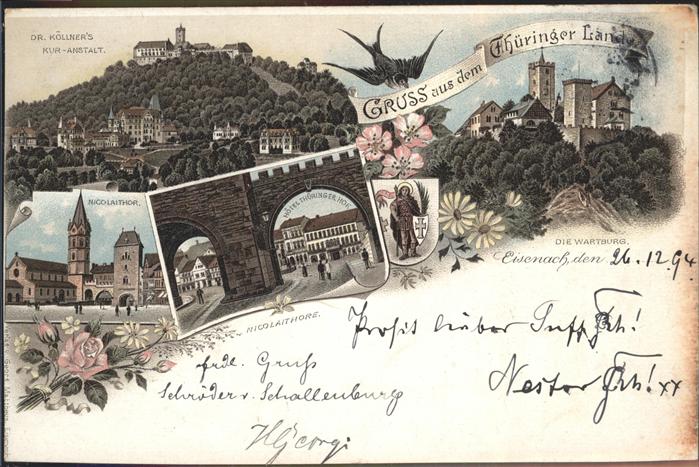 DR. KÖLLNER'S
KUR-ANSTALT.
GRUSS aus dem Thüringer Land
NICOLAITHOR.
HÔTEL THÜRINGER HOF
NICOLAITHORE.
DIE WARTBURG.
Eisenach, den 26.12.94
Prosit lieber
Nestor
xx
frdl. Gruss
Schröder v. Schallenburg
HGeorgi